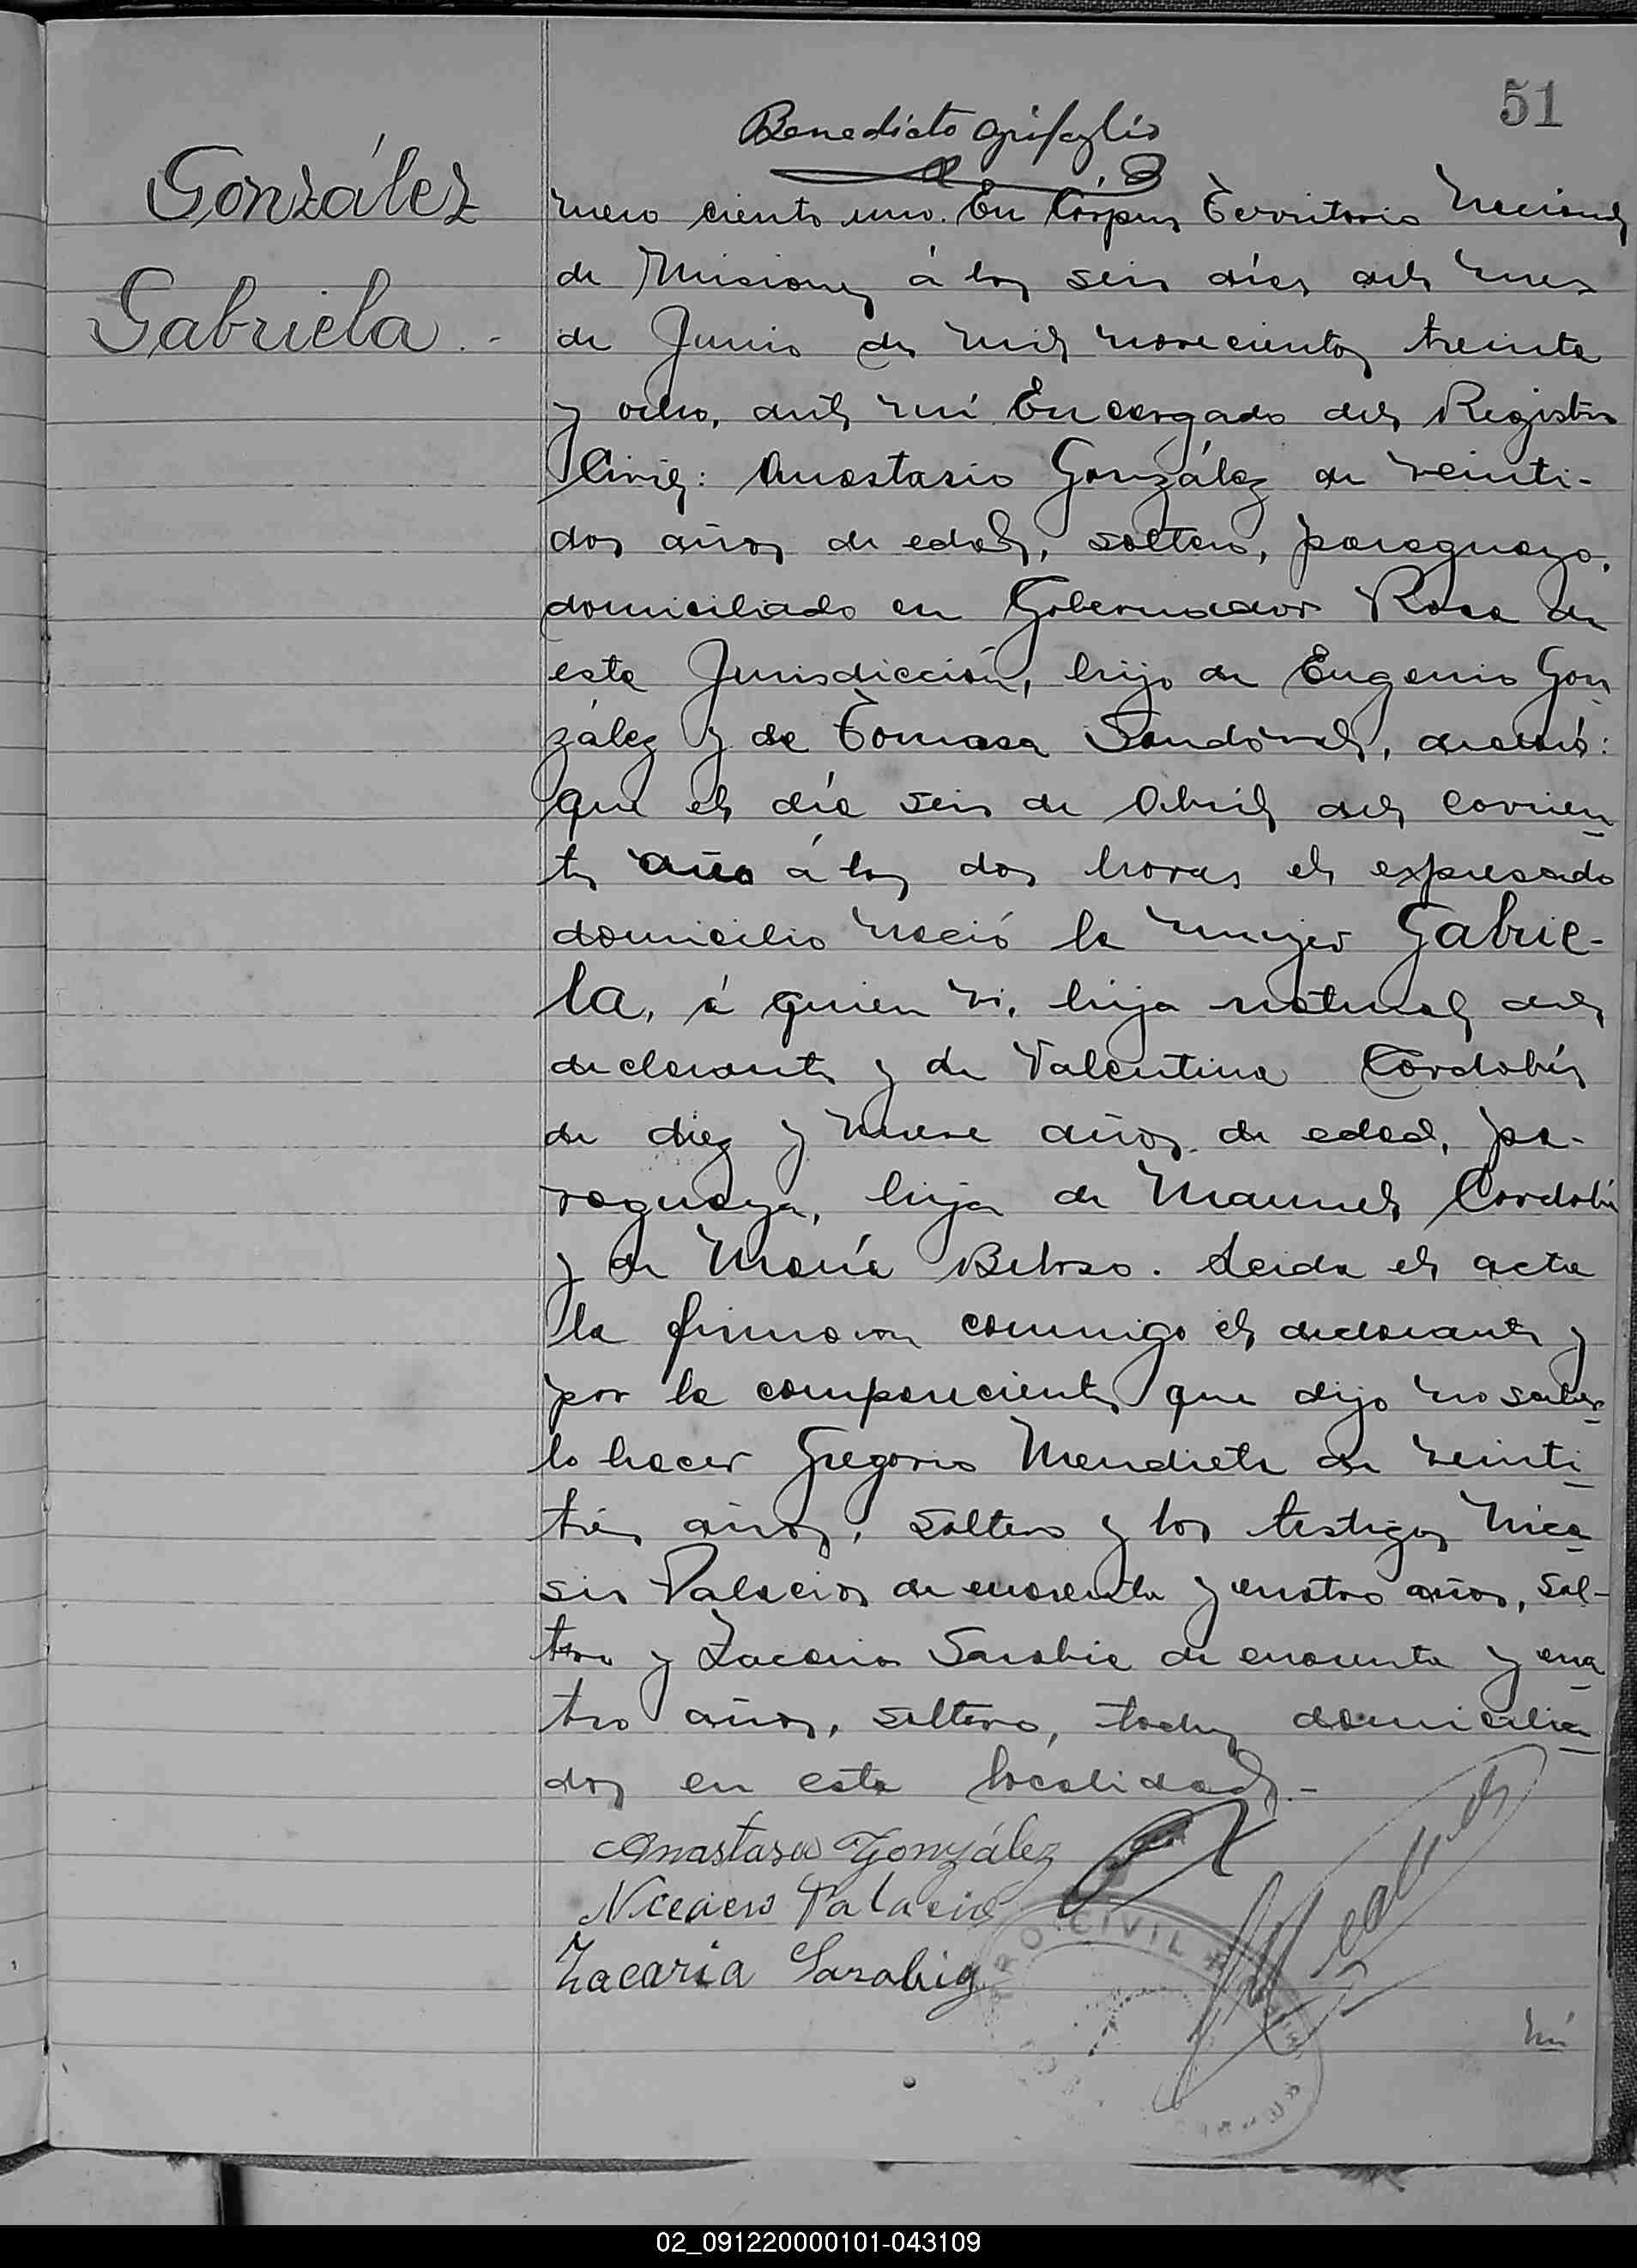 51
Benedicto
González
Gabriela.-
mero ciento uno. En Corpus Territorio Nacional
de Misiones á los seis días del mes
de Junio de mil novecientos treinta
y ocho, ante mi Encargado del Registro
Civil: Anastasio González de veinti-
dos años de edad, soltero, paraguayo,
domiciliado en Gobernador Roca de
esta Jurisdicción, hijo de Eugenio Gon
zález y de Tomasa Sandoval, declaró:
que el día seis de Abril del corrien
te año á las dos horas el expresado
domicilio nació la mujer Gabrie-
la, á quien vi, hija natural del
declarante y de Valentina Cordobés
de diez y nueve años de edad, pa-
raguaya, hija de Manuel Cordobés
y de María Beloso. Leida el acta
la firmaron conmigo el declarante y
por la compareciente que dijo no saber
lo hacer Gregorio Mendieta de veinti
trés años, soltero y los testigos Nica
sio Palacios de cuarenta y cuatro años, sol-
tero y Zacarias Sarabia de cuarenta y cua
tro años, soltero, todos domicilia
dos en esta localidad.-
Anastasio González
Palacio
Zacaria Sarabia
RO CIVIL
nú
02_091220000101-043109